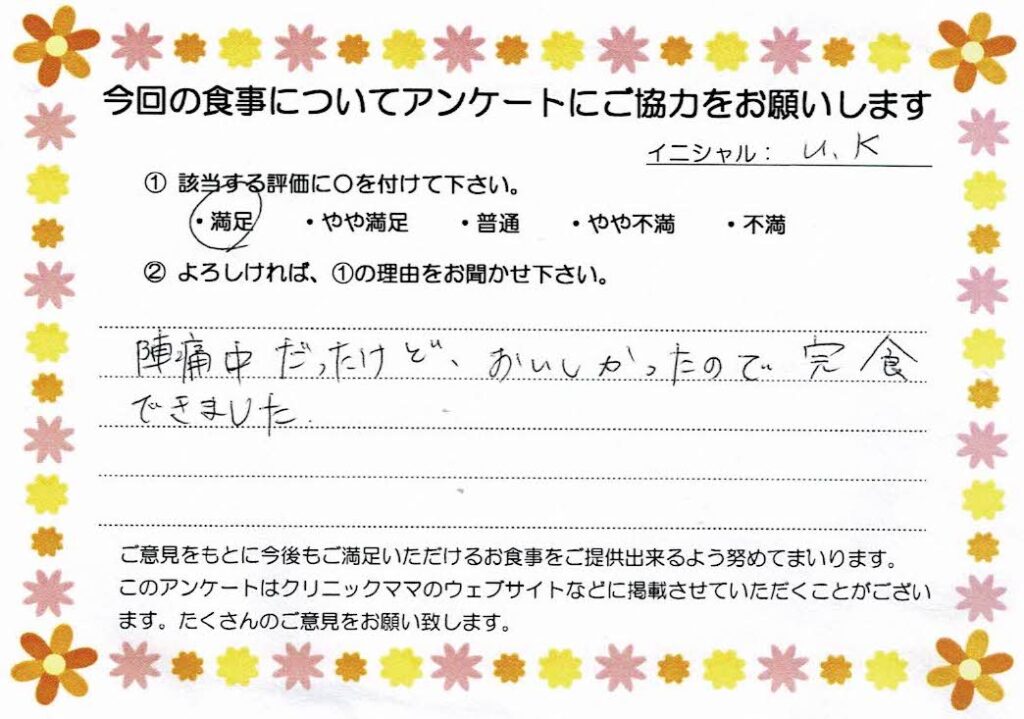 今回の食事についてアンケートにご協力をお願いします
イニシャル： U.K
① 該当する評価に〇を付けて下さい。
・満足 ・やや満足 ・普通 ・やや不満 ・不満
② よろしければ、①の理由をお聞かせ下さい。
陣痛中だったけど、おいしかったので完食
できました.
ご意見をもとに今後もご満足いただけるお食事をご提供出来るよう努めてまいります。
このアンケートはクリニックママのウェブサイトなどに掲載させていただくことがござい
ます。たくさんのご意見をお願い致します。